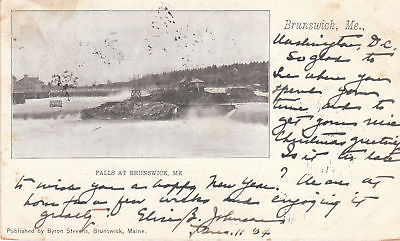 Brunswick, Me.,
Washington, D.C.
So glad to
see where you
spend your
time and to
get your nice
Christmas greeting
Is it too late
FALLS AT BRUNSWICK, ME.
to wish you a happy New Year? We are at
home for a few weeks and enjoying it
greatly. Elsie B. Johnson
Jan. 11 04
Published by Byron Stevens, Brunswick, Maine.